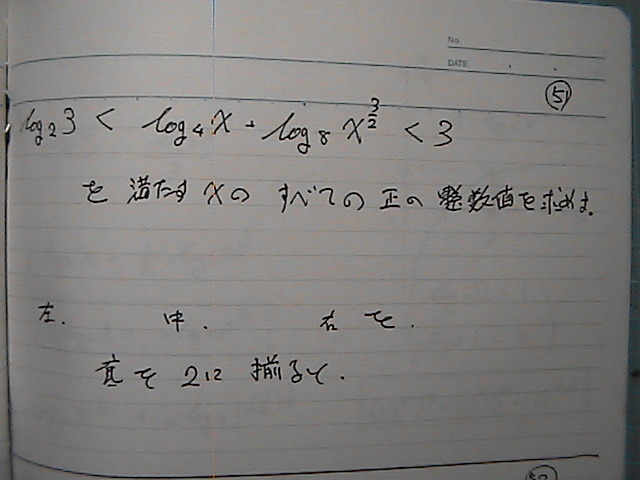 No.
DATE
51
log₂3 < log₄x + log₈x^{3/2} < 3
を満たすxのすべての正の整数値を求めよ.
左. 中. 右を.
底を2に揃ると.